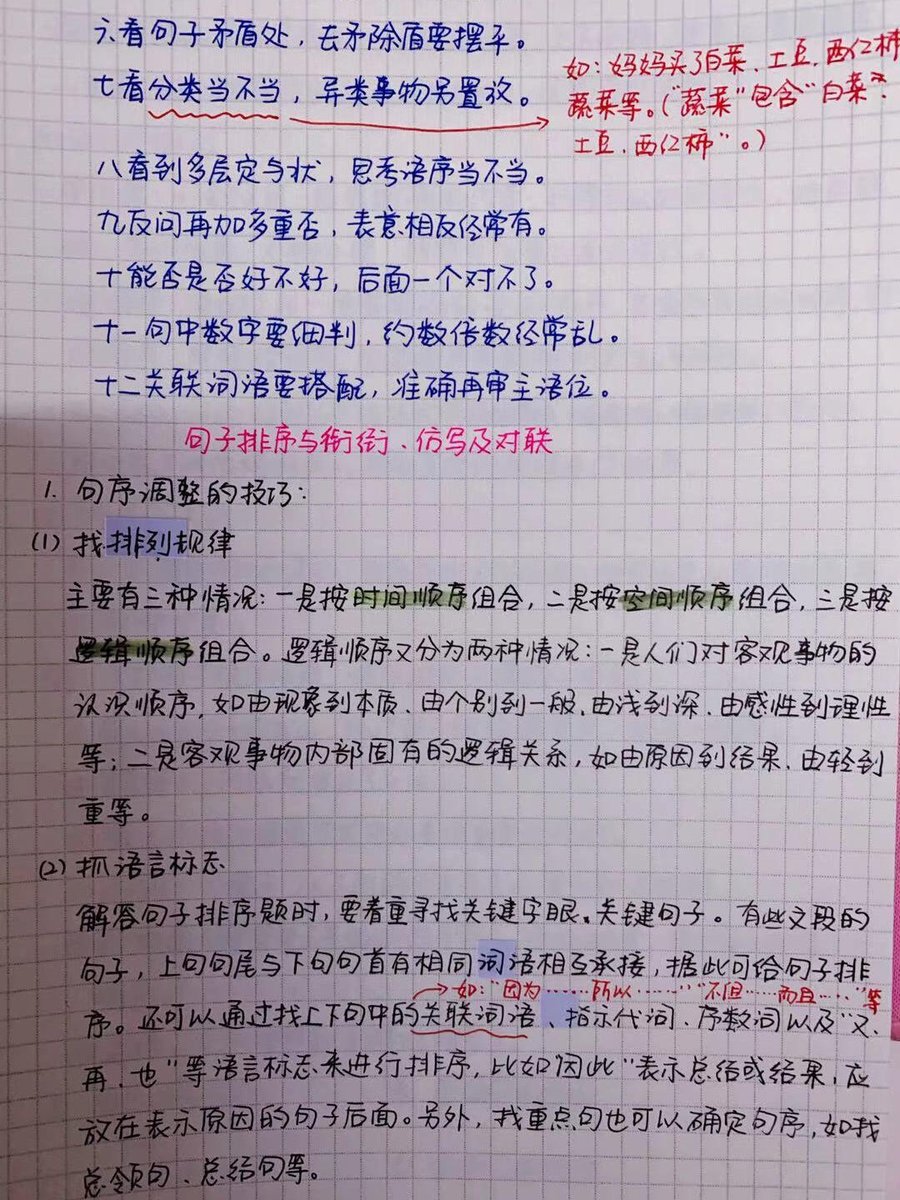 六看句子矛盾处，去矛除盾要摆平。
七看分类当不当，异类事物另置放。
如：妈妈买了白菜、土豆、西红柿
蔬菜等。（“蔬菜”包含“白菜”、
土豆、西红柿”。）
八看到多层定与状，思考语序当不当。
九反问再加多重否，表意相反经常有。
十能否是否好不好，后面一个对不了。
十一句中数字要细判，约数倍数经常乱。
十二关联词语要搭配，准确再审主语位。
句子排序与衔衔、仿写及对联
1. 句序调整的技巧：
(1) 找排列规律
主要有三种情况：一是按时间顺序组合，二是按空间顺序组合，三是按
逻辑顺序组合。逻辑顺序又分为两种情况：一是人们对客观事物的
认识顺序，如由现象到本质、由个别到一般、由浅到深、由感性到理性
等；二是客观事物内部固有的逻辑关系，如由原因到结果、由轻到
重等。
(2) 抓语言标志
解答句子排序题时，要着重寻找关键字眼、关键句子。有些文段的
句子，上句句尾与下句句首有相同词语相互承接，据此可给句子排
如：“因为……所以……”“不但……而且……”等
序。还可以通过找上下句中的关联词语、指示代词、序数词以及“又、
再、也”等语言标志来进行排序，比如因此”表示总结或结果，应
放在表示原因的句子后面。另外，找重点句也可以确定句序，如找
总领句、总结句等。